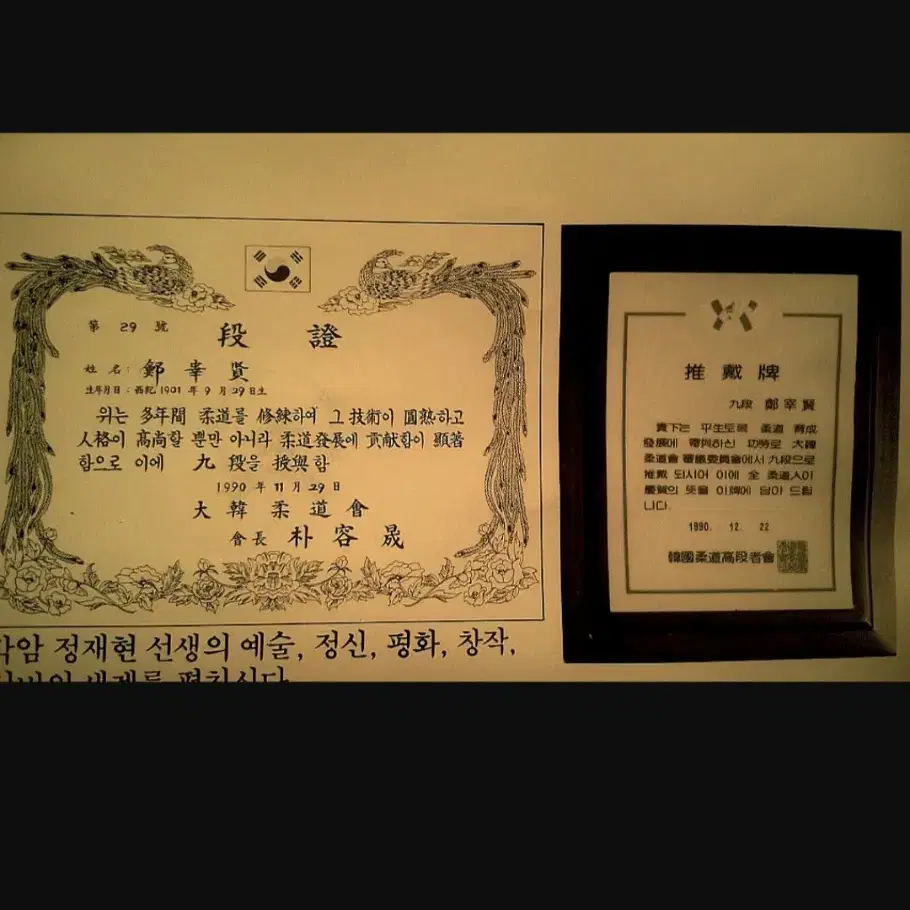 第 29 號
段 證
姓名: 鄭 宰 賢
生年月日 : 西紀 1901 年 9 月 29 日生
위는 多年間 柔道를 修練하여 그 技術이 圓熟하고
人格이 高尚할 뿐만 아니라 柔道發展에 貢献함이 顯著
함으로 이에 九 段을 授與함
1990 年 11 月 29 日
大 韓 柔 道 會
會長 朴 容 晟
推 戴 牌
九段 鄭 宰 賢
貴下는 平生토록 柔道 育成
發展에 하신 功勞로 大韓
柔道會 審議委員會에서 九段으로
推戴 되시어 이에 全 柔道人이
慶賀의 뜻을 이 牌에 담아 드립
니다.
1990. 12. 22
韓國柔道高段者會
암 정재현 선생의 예술, 정신, 평화, 창작,
세계를 펼치시다